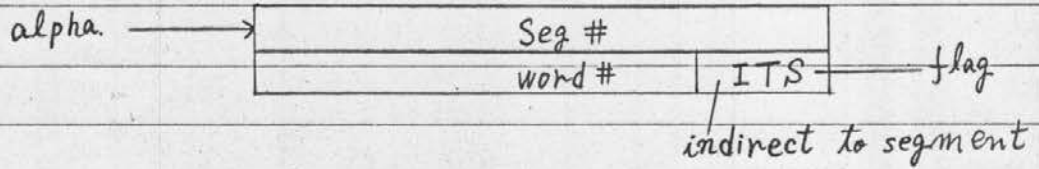 alpha. Seg #
word # ITS flag
indirect to segment